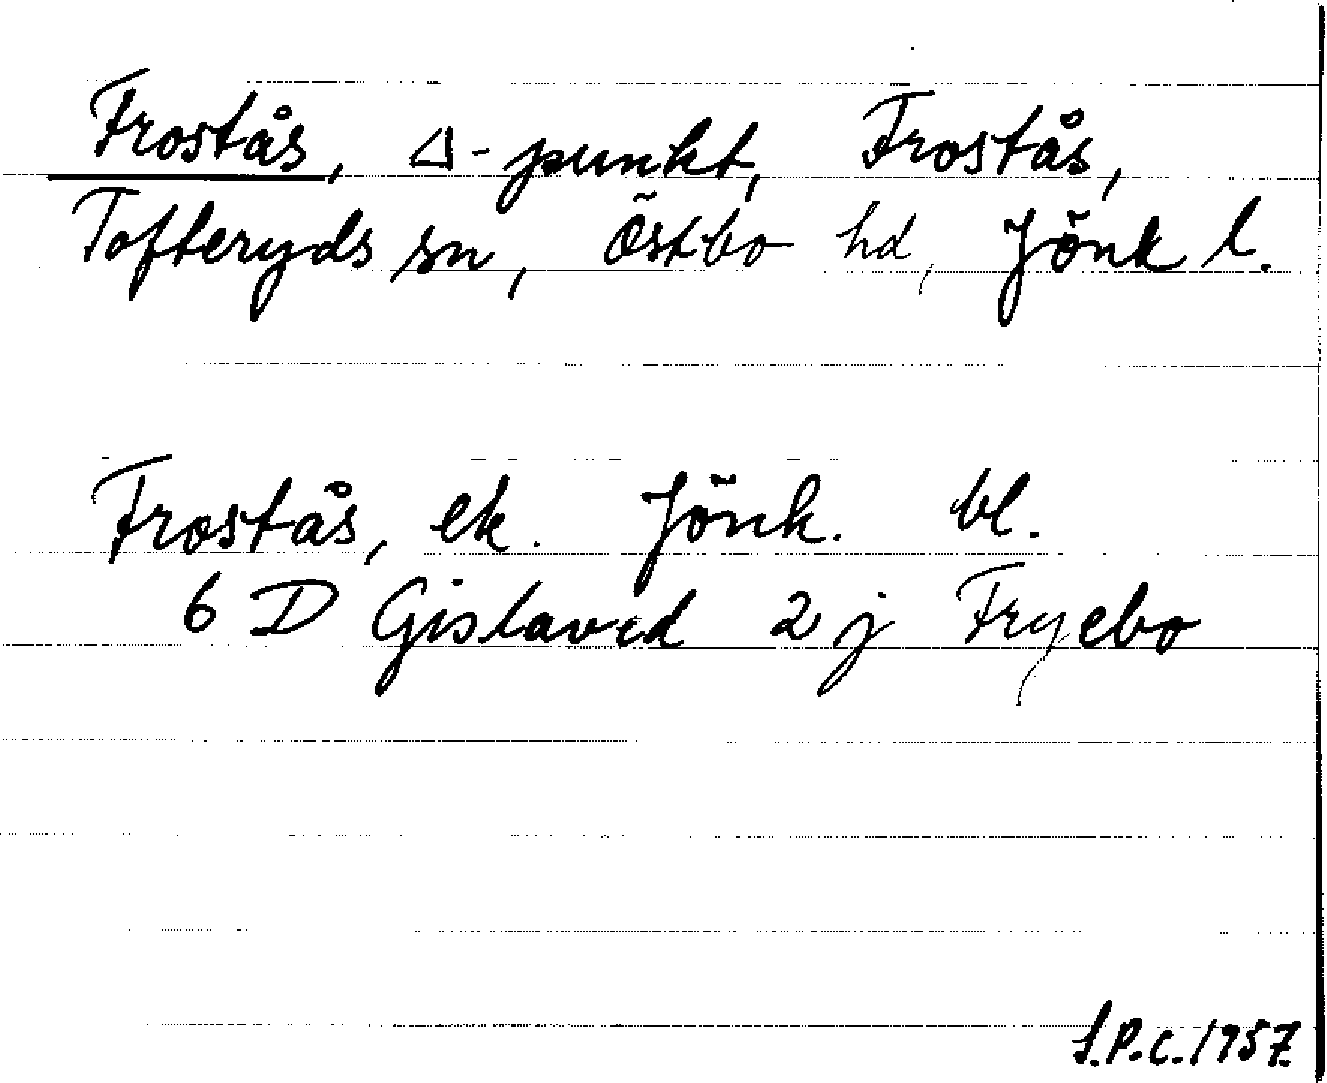 Frostås, Δ-punkt, Frostås,
Tofteryds sn, Östbo hd, Jönk l.
Frostås, ek. Jönk. bl.
6 D Gislaved 2 j Fryebo
S.P.C. 1957.